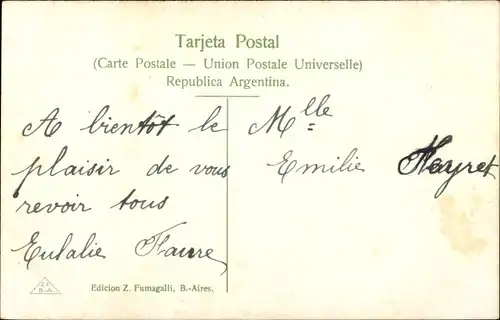 Tarjeta Postal
(Carte Postale — Union Postale Universelle)
Republica Argentina.
A bientôt le
plaisir de vous
revoir tous
Eulalie Faure
Mlle
Emilie Heyret
Edicion Z. Fumagalli, B.-Aires.